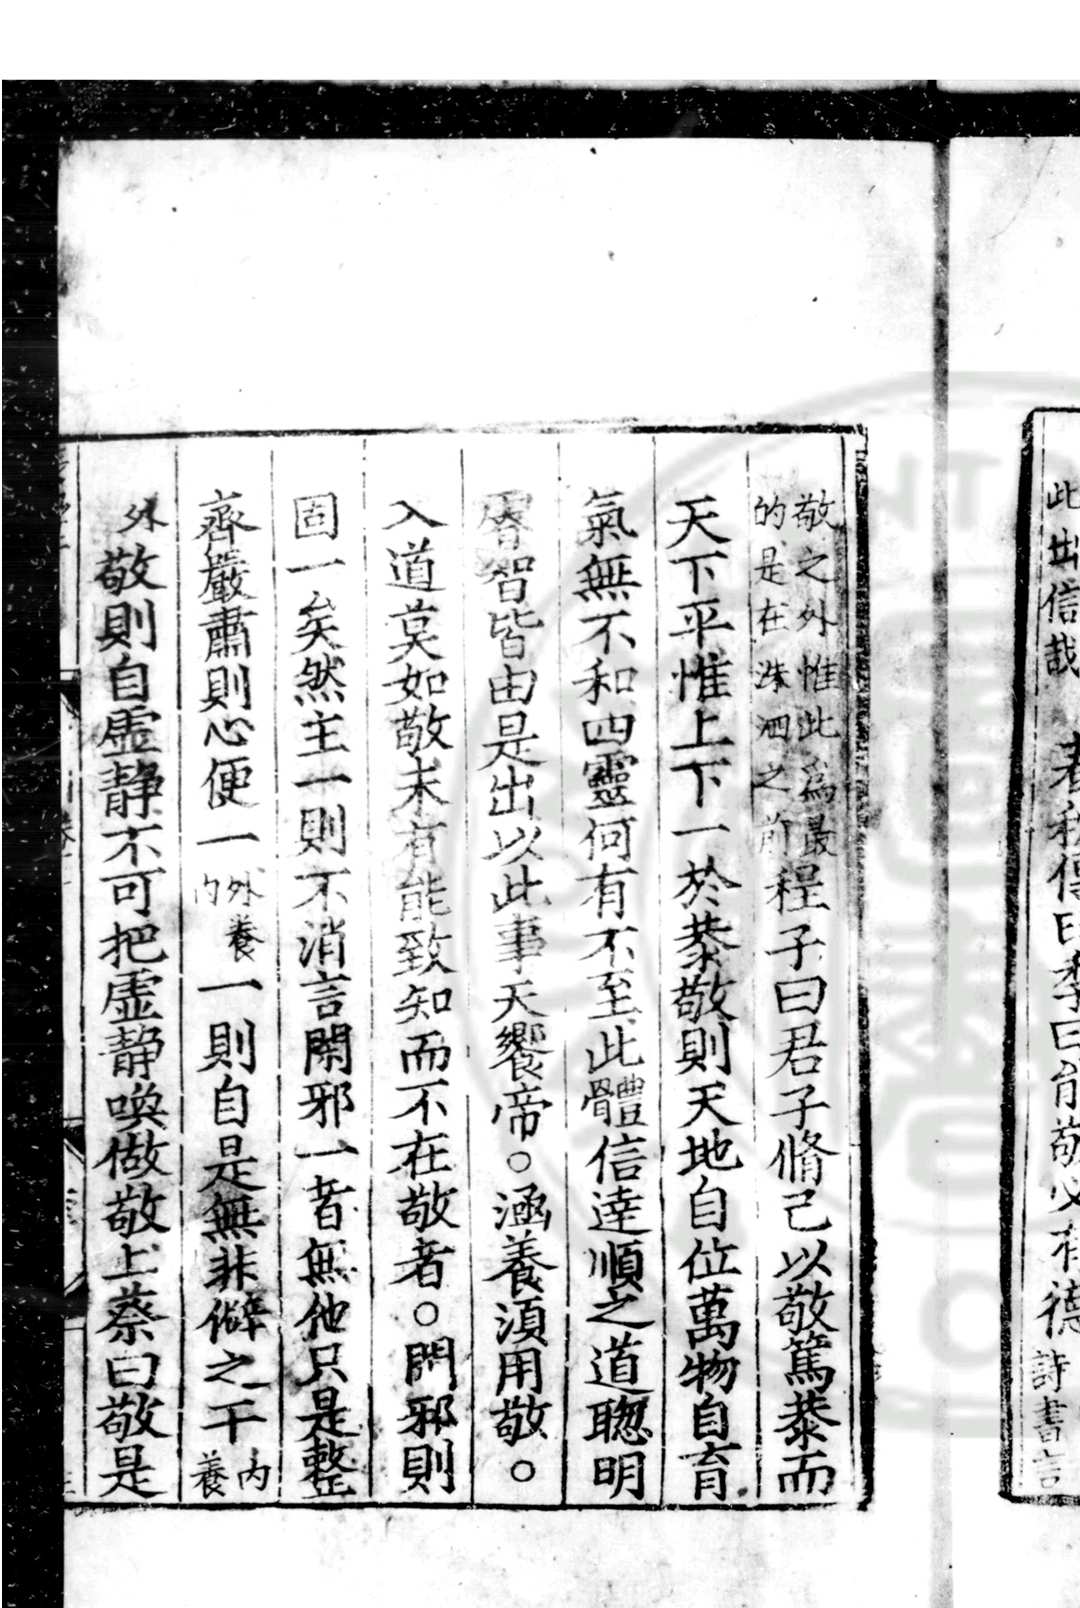 此出信哉　者秋傳曰季曰能敬必有德詩書言
敬之外惟此爲最
的是在洙泗之前
程子曰君子脩己以敬篤恭而
天下平惟上下一於恭敬則天地自位萬物自育
氣無不和四靈何有不至此體信達順之道聦明
睿智皆由是出以此事天饗帝。涵養湏用敬。。
入道莫如敬未有能致知而不在敬者。閑邪則
固一矣然主一則不消言閑邪一者無他只是整
齊嚴肅則心便一外養内一則自是無非僻之干内養
外敬則自虛静不可把虛静喚做敬上蔡曰敬是